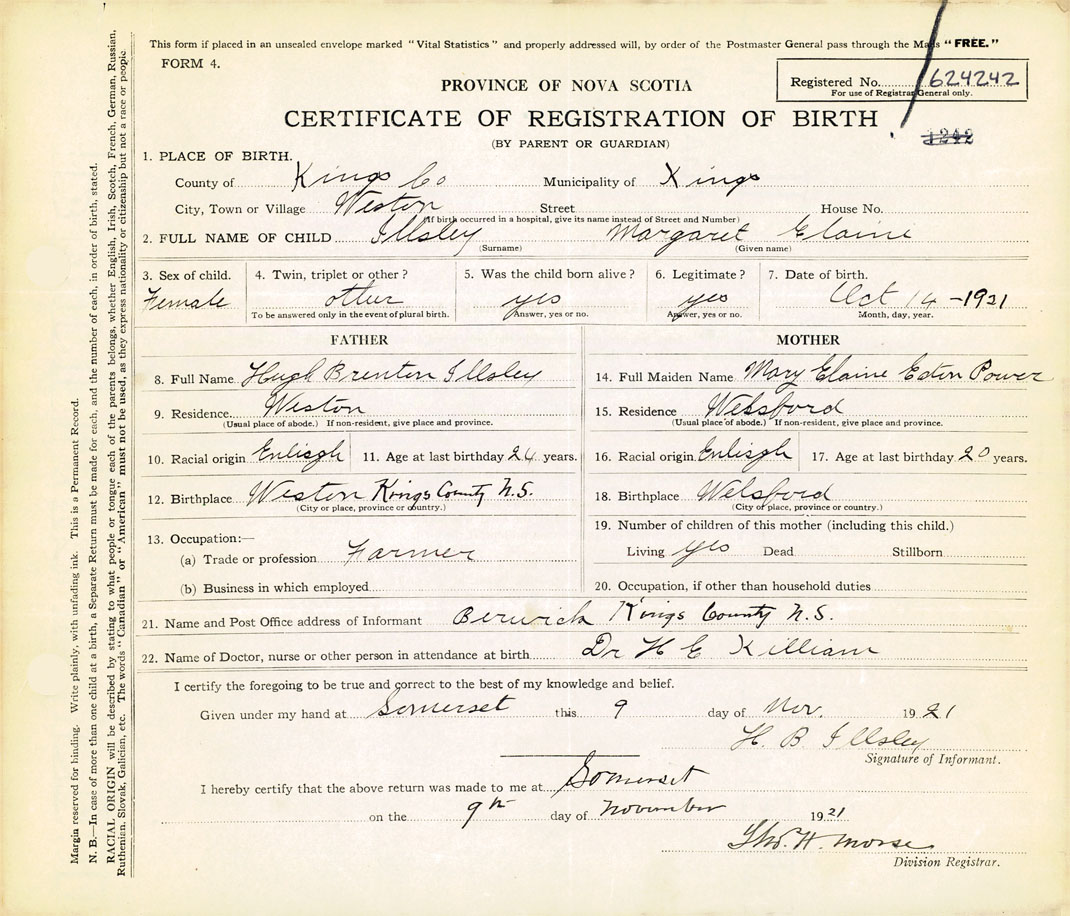 This form if placed in an unsealed envelope marked "Vital Statistics" and properly addressed will, by order of the Postmaster General pass through the Mails "FREE."
FORM 4.
Registered No. 624242
For use of Registrar General only.
PROVINCE OF NOVA SCOTIA
CERTIFICATE OF REGISTRATION OF BIRTH
1242
(BY PARENT OR GUARDIAN)
1. PLACE OF BIRTH.
County of Kings Co Municipality of Kings
City, Town or Village Weston Street House No.
(If birth occurred in a hospital, give its name instead of Street and Number)
2. FULL NAME OF CHILD Illsley Margaret Elaine
(Surname) (Given name)
3. Sex of child. 4. Twin, triplet or other? 5. Was the child born alive? 6. Legitimate? 7. Date of birth.
Female other yes yes Oct 14 - 1921
To be answered only in the event of plural birth. Answer, yes or no. Answer, yes or no. Month, day, year.
FATHER MOTHER
8. Full Name Hugh Brenton Illsley 14. Full Maiden Name Mary Elaine Power
9. Residence Weston 15. Residence Welsford
(Usual place of abode.) If non-resident, give place and province. (Usual place of abode.) If non-resident, give place and province.
10. Racial origin Enlisgh 11. Age at last birthday years. 16. Racial origin Enlisgh 17. Age at last birthday 20 years.
12. Birthplace Weston Kings County N.S. 18. Birthplace Welsford
(City or place, province or country.) (City or place, province or country.)
19. Number of children of this mother (including this child.)
13. Occupation:—
(a) Trade or profession Farmer Living yes Dead Stillborn
(b) Business in which employed 20. Occupation, if other than household duties
21. Name and Post Office address of Informant Berwick Kings County N.S.
22. Name of Doctor, nurse or other person in attendance at birth Dr H E Killiam
I certify the foregoing to be true and correct to the best of my knowledge and belief.
Given under my hand at Somerset this 9 day of Nov. 1921
H. B Illsley
Signature of Informant.
I hereby certify that the above return was made to me at Somerset
on the 9th day of November 1921
Thos. H. Morse
Division Registrar.
Margin reserved for binding. Write plainly, with unfading ink. This is a Permanent Record.
N. B.—In case of more than one child at a birth, a Separate Return must be made for each, and the number of each, in order of birth, stated.
RACIAL ORIGIN will be described by stating to what people or tongue each of the parents belongs, whether English, Irish, Scotch, French, German, Russian,
Ruthenian, Slovak, Galician, etc. The words "Canadian" or "American" must not be used, as they express nationality or citizenship but not a race or people